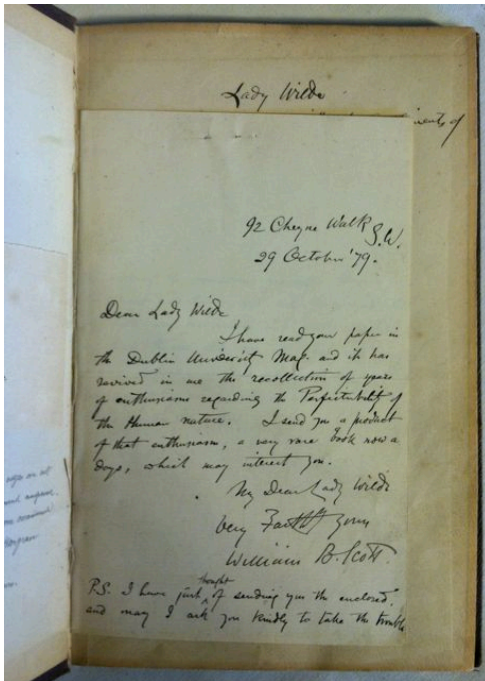 Lady Wilde
of
92 Cheyne Walk
S.W.
29 October '79.
Dear Lady Wilde
I have read your paper in
the Dublin University Mag. and it has
revived in me the recollection of years
of enthusiasm regarding the Perfectibility of
the Human nature. I send you a product
of that enthusiasm, a very rare book now a
days, which may interest you.
My Dear Lady Wilde
Very Faithfy yours
William B. Scott.
P.S. I have just thought of sending you the enclosed.
and may I ask you kindly to take the trouble